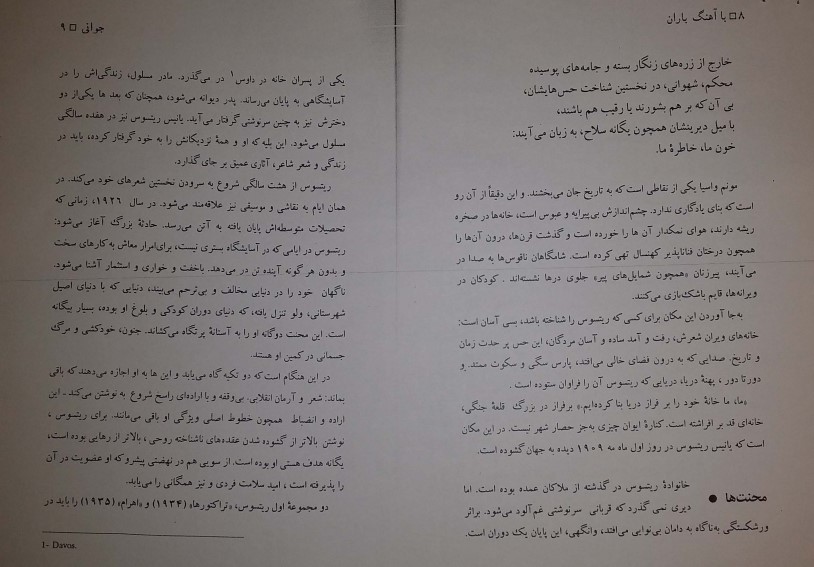 ۸ □ با آهنگ باران
خارج از زره‌های زنگار بسته و جامه‌های پوسیده
محکم، شهوانی، در نخستین شناخت حس‌هایشان،
بی آن که بر هم بشورند یا رقیب هم باشند،
با میل دیرینشان همچون یگانه سلاح، به زبان می‌آیند:
خون ما، خاطرهٔ ما.
مونم واسیا یکی از نقاطی است که به تاریخ جان می‌بخشند. و این دقیقاً از آن رو
است که بنای یادگاری ندارد. چشم‌اندازش بی‌پیرایه و عبوس است، خانه‌ها در صخره
ریشه دارند، هوای نمکدار آن ها را خورده است و گذشت قرن‌ها، درون آن‌ها را
همچون درختان فناناپذیر کهنسال تهی کرده است. شامگاهان ناقوس‌ها به صدا در
می‌آیند، پیرزنان «همچون شمایل‌های پیر» جلوی درها نشسته‌اند . کودکان در
ویرانه‌ها، قایم باشک‌بازی می‌کنند.
به‌جا آوردن این مکان برای کسی که ریتسوس را شناخته باشد، بسی آسان است:
خانه‌های ویران شعرش، رفت و آمد ساده و آسان مردگان، این حس پر حدت زمان
و تاریخ. صدایی که به درون فضای خالی می‌افتد، پارس سگی و سکوت ممتد و
دور تا دور ، پهنهٔ دریا، دریایی که ریتسوس آن را فراوان ستوده است .
«ما، ما خانهٔ خود را بر فراز دریا بنا کرده‌ایم.» برفراز در بزرگ قلعهٔ جنگی،
خانه‌ای قد بر افراشته است. کنارهٔ ایوان چیزی به‌جز حصار شهر نیست. در این مکان
است که یانیس ریتسوس در روز اول ماه مه ۱۹۰۹ دیده به جهان گشوده است.
محنت‌ها ●
خانوادهٔ ریتسوس در گذشته از ملاکان عمده بوده است. اما
دیری نمی گذرد که قربانی سرنوشتی غم‌آلود می‌شود. براثر
ورشکستگی به‌ناگاه به دامان بی‌نوایی می‌افتد، وانگهی، این پایان یک دوران است.
جوانی □ ۹
یکی از پسران خانه در داوس۱ در می‌گذرد. مادر مسلول، زندگی‌اش را در
آسایشگاهی به پایان می‌رساند. پدر دیوانه می‌شود، همچنان که بعد ها یکی‌از دو
دخترش نیز به چنین سرنوشتی گرفتار می‌آید. یانیس ریتسوس نیز در هفده سالگی
مسلول می‌شود. این بلیه که او و همهٔ نزدیکانش را به خود گرفتار کرده، باید در
زندگی و شعر شاعر، آثاری عمیق بر جای گذارد.
ریتسوس از هشت سالگی شروع به سرودن نخستین شعرهای خود می‌کند. در
همان ایام به نقاشی و موسیقی نیز علاقه‌مند می‌شود. در سال ۱۹۲۶، زمانی که
تحصیلات متوسطه‌اش پایان یافته به آتن می‌رسد. حادثهٔ بزرگ آغاز می‌شود:
ریتسوس در ایامی که در آسایشگاه بستری نیست، برای‌امرار معاش به‌کارهای سخت
و بدون هر گونه آینده تن در می‌دهد. باخفت و خواری و استثمار آشنا می‌شود.
ناگهان خود را در دنیایی مخالف و بی‌ترحم می‌بیند، دنیایی که با دنیای اصیل
شهرستانی، ولو تنزل یافته، که دنیای دوران کودکی و بلوغ او بوده، بسیار بیگانه
است. این محنت دوگانه او را به آستانهٔ پرتگاه می‌کشاند. جنون، خودکشی و مرگ
جسمانی در کمین او هستند.
در این هنگام است که دو تکیه گاه می‌یابد و این ها به او اجازه می‌دهند که باقی
بماند: شعر و آرمان انقلابی. بی‌وقفه و با اراده‌ای راسخ شروع به نوشتن می‌کند ـ این
اراده و انضباط همچون خطوط اصلی ویژگی او باقی می‌مانند. برای ریتسوس ،
نوشتن بالاتر از گشوده شدن عقده‌های ناشناخته روحی ، بالاتر از رهایی بوده است،
یگانه هدف هستی او بوده است. از سویی هم در نهضتی پیشرو که او عضویت در آن
را پذیرفته است ، امید سلامت فردی و نیز همگانی را می‌یابد.
دو مجموعهٔ اول ریتسوس، «تراکتورها» (۱۹۳۴) و «اهرام» (۱۹۳۵) را باید در
1- Davos.